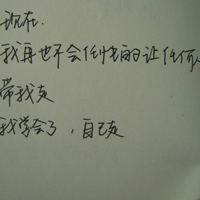 现在.
我再也不会任性的让任何
带我走
我学会了，自己走